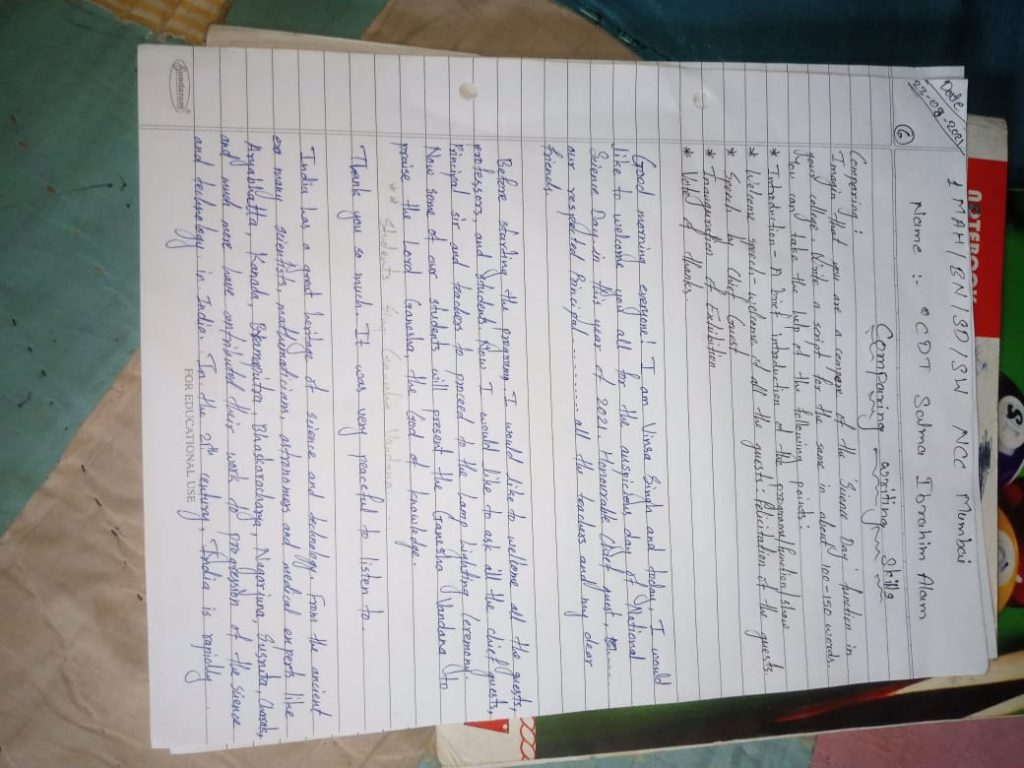 Date
23.09.2021
1 MAH/BN/SD/SW NCC Mumbai
Name :- CDT Salma Ibrahim Alam
Comparing writing Skills
6
Comparing :
Imagin that you are a compere of the 'Science Day' function in
your college. Write a script for the same in about 100-150 words.
You can take the help of the following points:
* Introduction - A brief introduction of the programe/function/show
* Welcome speech - welcome of all the guests. felicitation of the guests
* Speech by Chief Guest
* Inauguration of Exhibition
* Vote of thanks
Good morning everyone! I am Vinisa Singh and today, I would
like to welcome you all for the auspicious day of National
Science Day in this year of 2021. Honourable Chief guest,
our respected Principal .......... all the teachers and my dear
friends.
Before starting the program I would like to welcome all the guests,
professors, and students. Now I would like to ask all the chief guests,
sir and teachers to proceed to the lamp lighting Ceremony.
Now some of our students will present the Ganesha Vandana to
praise the Lord Ganesha, the God of knowledge.
** Students Ganesha Vandana
Thank you so much. It was very peaceful to listen to.
India has a great heritage of science and technology. From the ancient
era many scientists, mathematicians, astronomers and medical experts like
Aryabhatta, Kanada, Brahmgupta, Bhaskaracharya, Nagarjuna, Susruta, Charak,
and much more have contributed their work to progression of the science
and technology in India. In the 21st century, India is rapidly
Sundaram
FOR EDUCATIONAL USE
NOTEBOOK